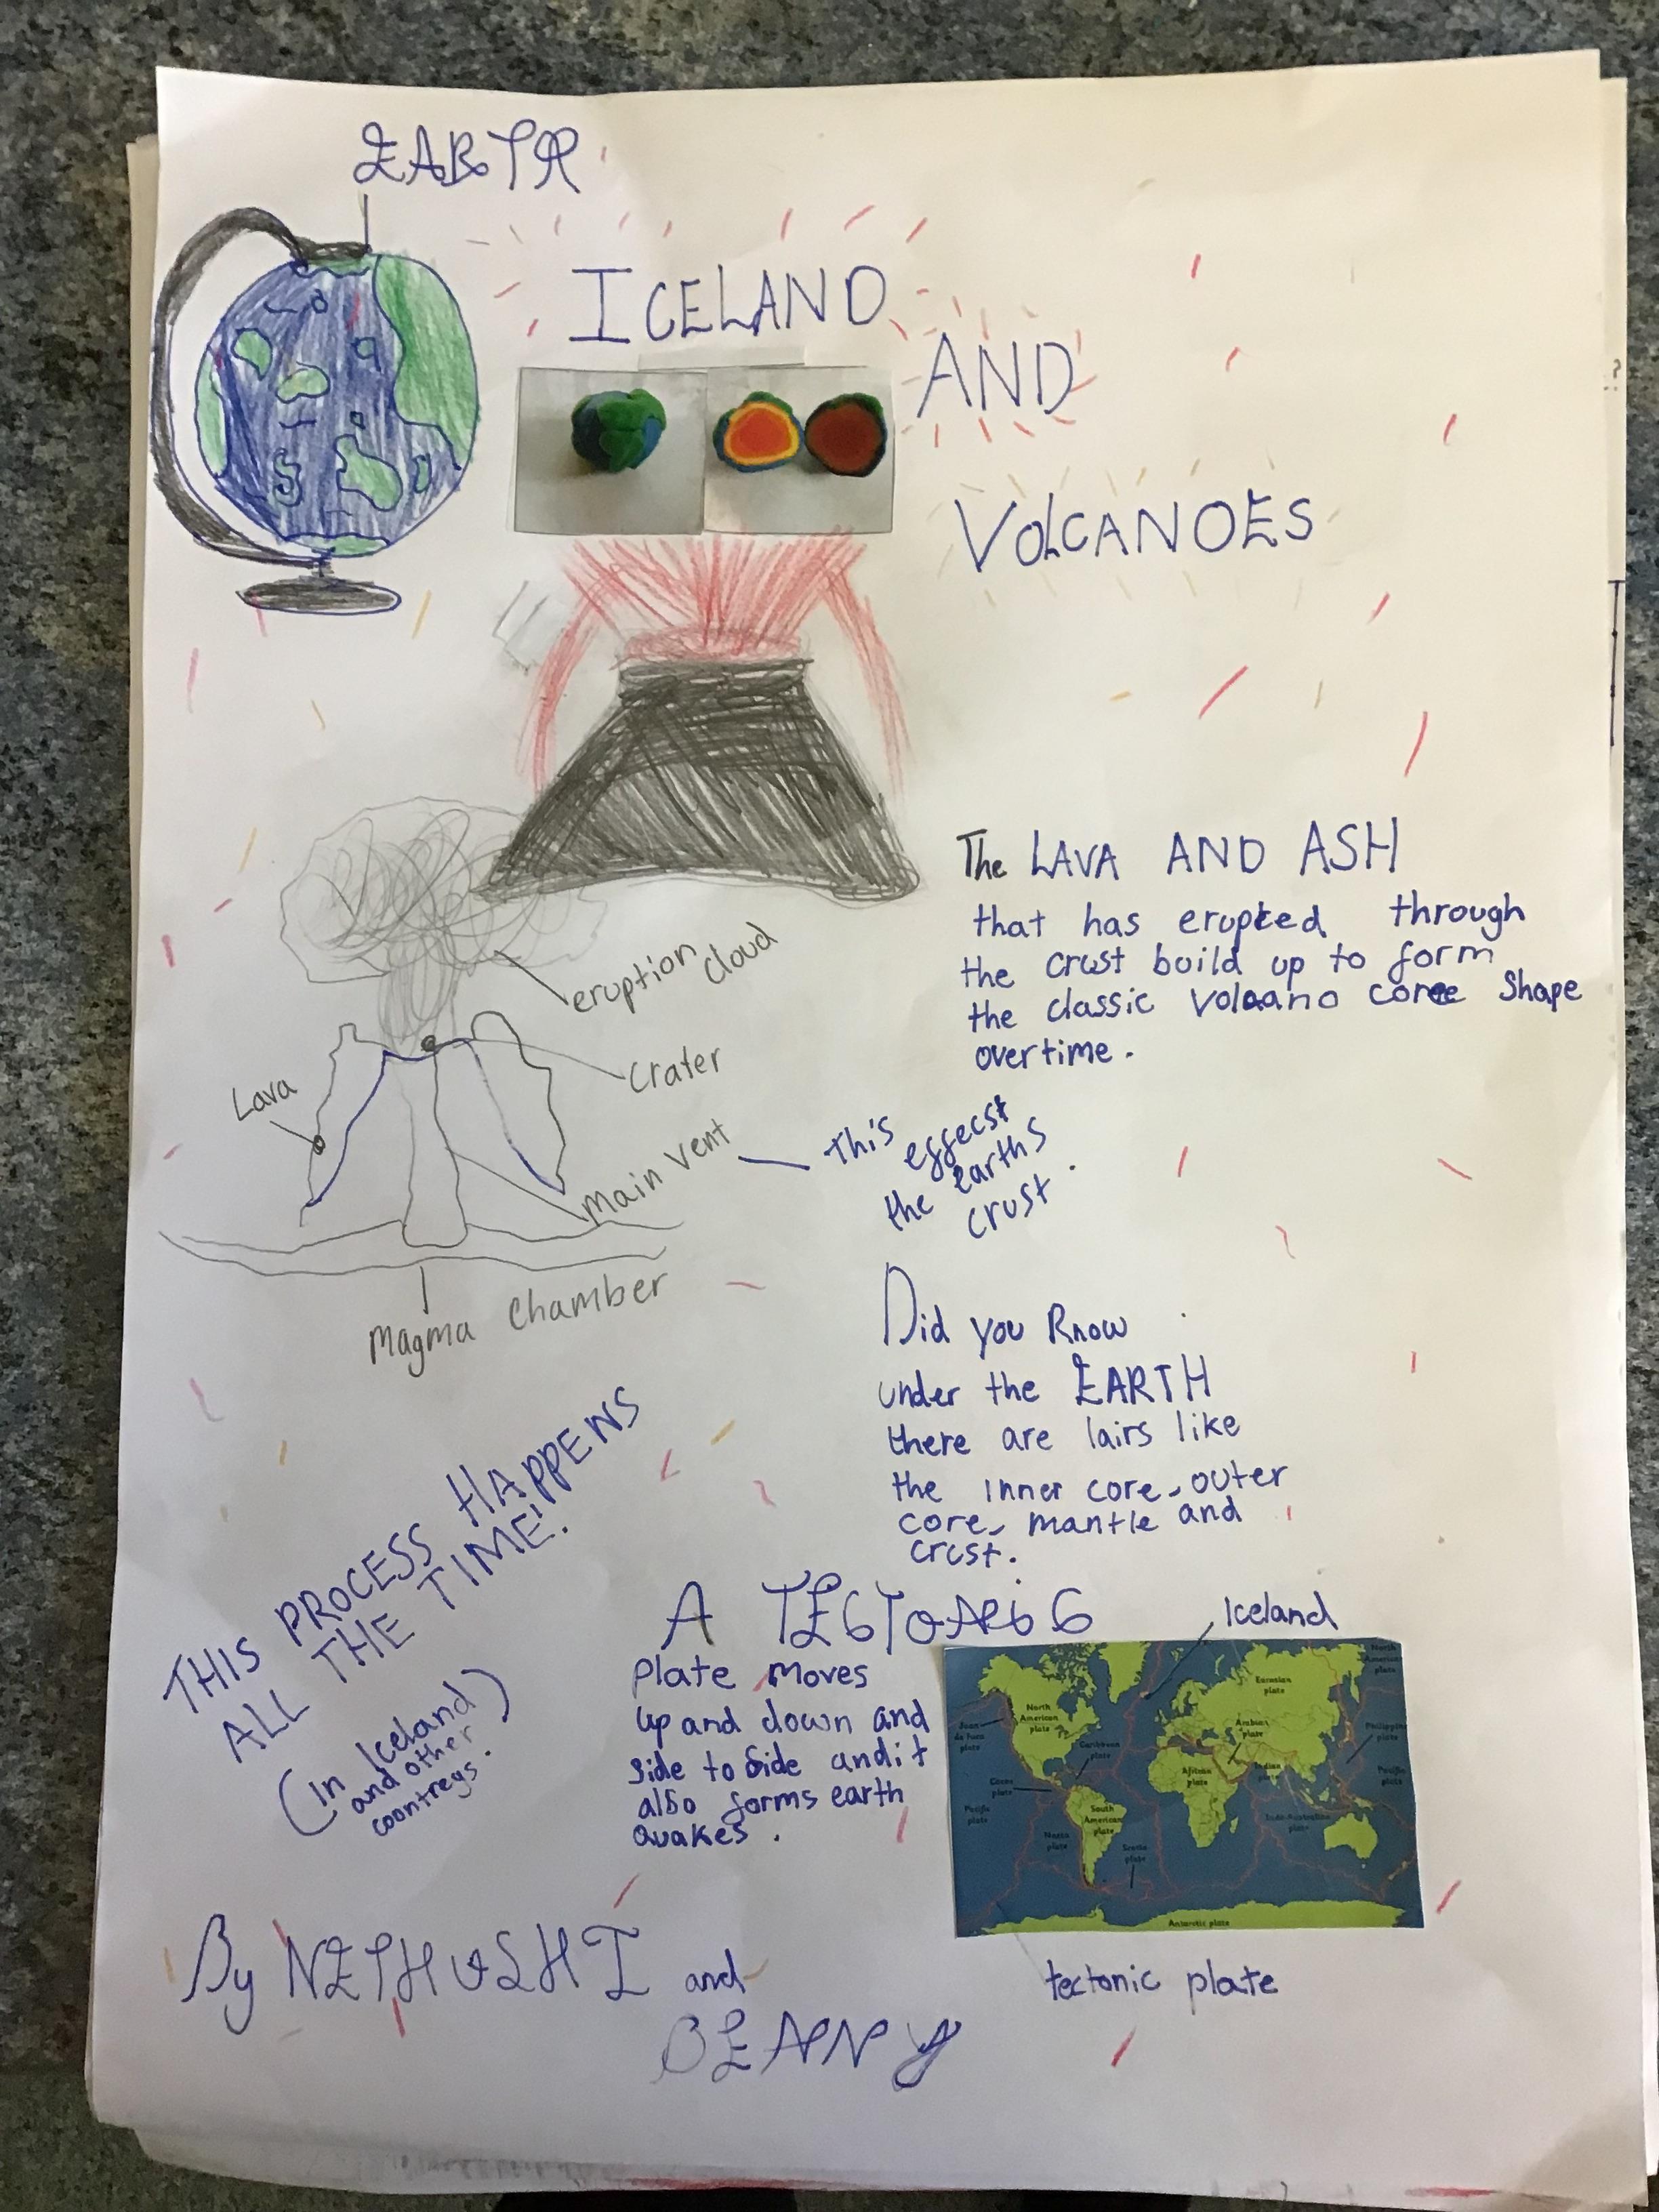 EARTH
ICELAND
AND
VOLCANOES
The LAVA AND ASH
that has erupted through
the crust build up to form
the classic Volcano cone Shape
overtime.
eruption cloud
Crater
Lava
Main Vent
This
effecst
the earths
crust.
Magma Chamber
Did you Know
under the EARTH
there are lairs like
the inner core, outer
core, mantle and
crust.
THIS PROCESS HAPPENS
ALL THE TIME!
(In Iceland
and other
coontreys.)
A TECTONIC
Plate Moves
up and down and
side to side and it
also forms earth
quakes.
Iceland
North American plate
Eurasian plate
North American plate
Juan de Fuca plate
Caribbean plate
Arabian plate
Philippine plate
Cocos plate
African plate
Indian plate
Pacific plate
Pacific plate
South American plate
Nazca plate
Scotia plate
Indo-Australian plate
Antarctic plate
tectonic plate
By NETHUSHI and